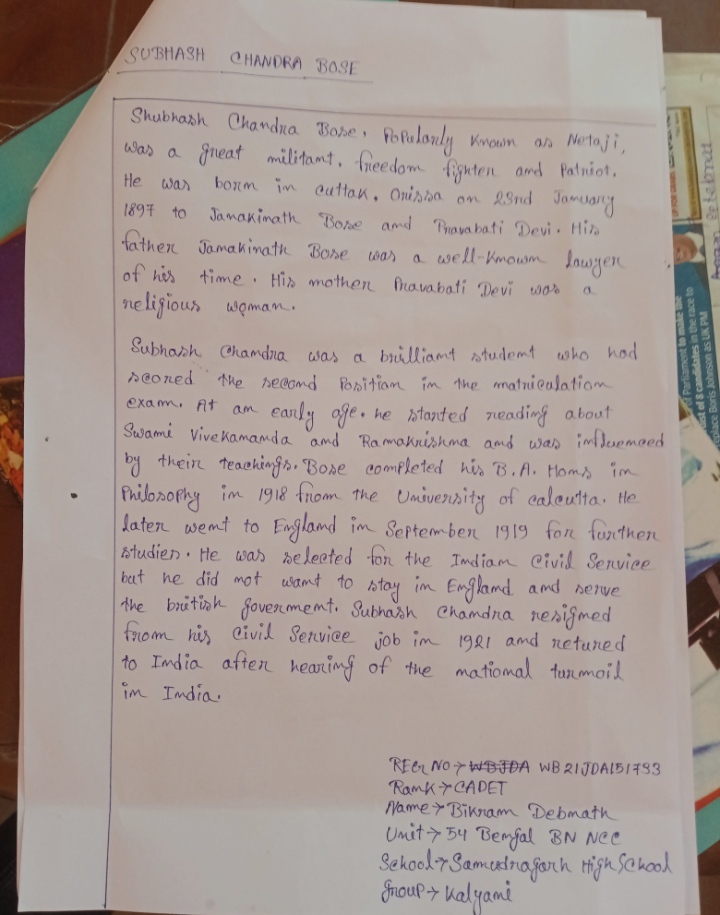 SUBHASH CHANDRA BOSE
Shubhash Chandra Bose, Popularly Known as Netaji,
was a great militant, freedom fighter and Patriot.
He was born in cuttak, Orissa on 23nd January
1897 to Janakinath Bose and Pravabati Devi. His
father Janakinath Bose was a well-known lawyer
of his time. His mother Pravabati Devi was a
religious woman.
Subhash Chandra was a brilliant student who had
scored the second Position in the matriculation
exam. At an early age, he started reading about
Swami Vivekananda and Ramakrishna and was influenced
by their teachings. Bose completed his B.A. Hons in
Philosophy in 1918 from the University of calcutta. He
later went to England in September 1919 for further
studies. He was selected for the Indian Civil Service
but he did not want to stay in England and serve
the british goverment. Subhash Chandra resigned
from his Civil Service job in 1921 and retuned
to India after hearing of the national turmoil
in India.
REG NO → WBJDA WB21JDA151793
Rank → CADET
Name → Bikram Debnath
Unit → 54 Bengal BN NCC
School → Samudragarh High School
Group → Kalyani
of Parliament to make the
list of 8 candidates in the race to
replace Boris Johnson as UK PM